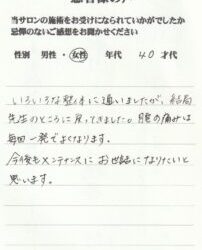 当サロンの施術をお受けになられていかがでしたか
忌憚のないご感想をお聞かせください
性別 男性・女性 年代 40才代
いろいろな整体に通いましたが、結局
先生のところに戻ってきました。腰の痛みは
毎回一発でよくなります。
今後もメンテナンスにお世話になりたいと
思います。